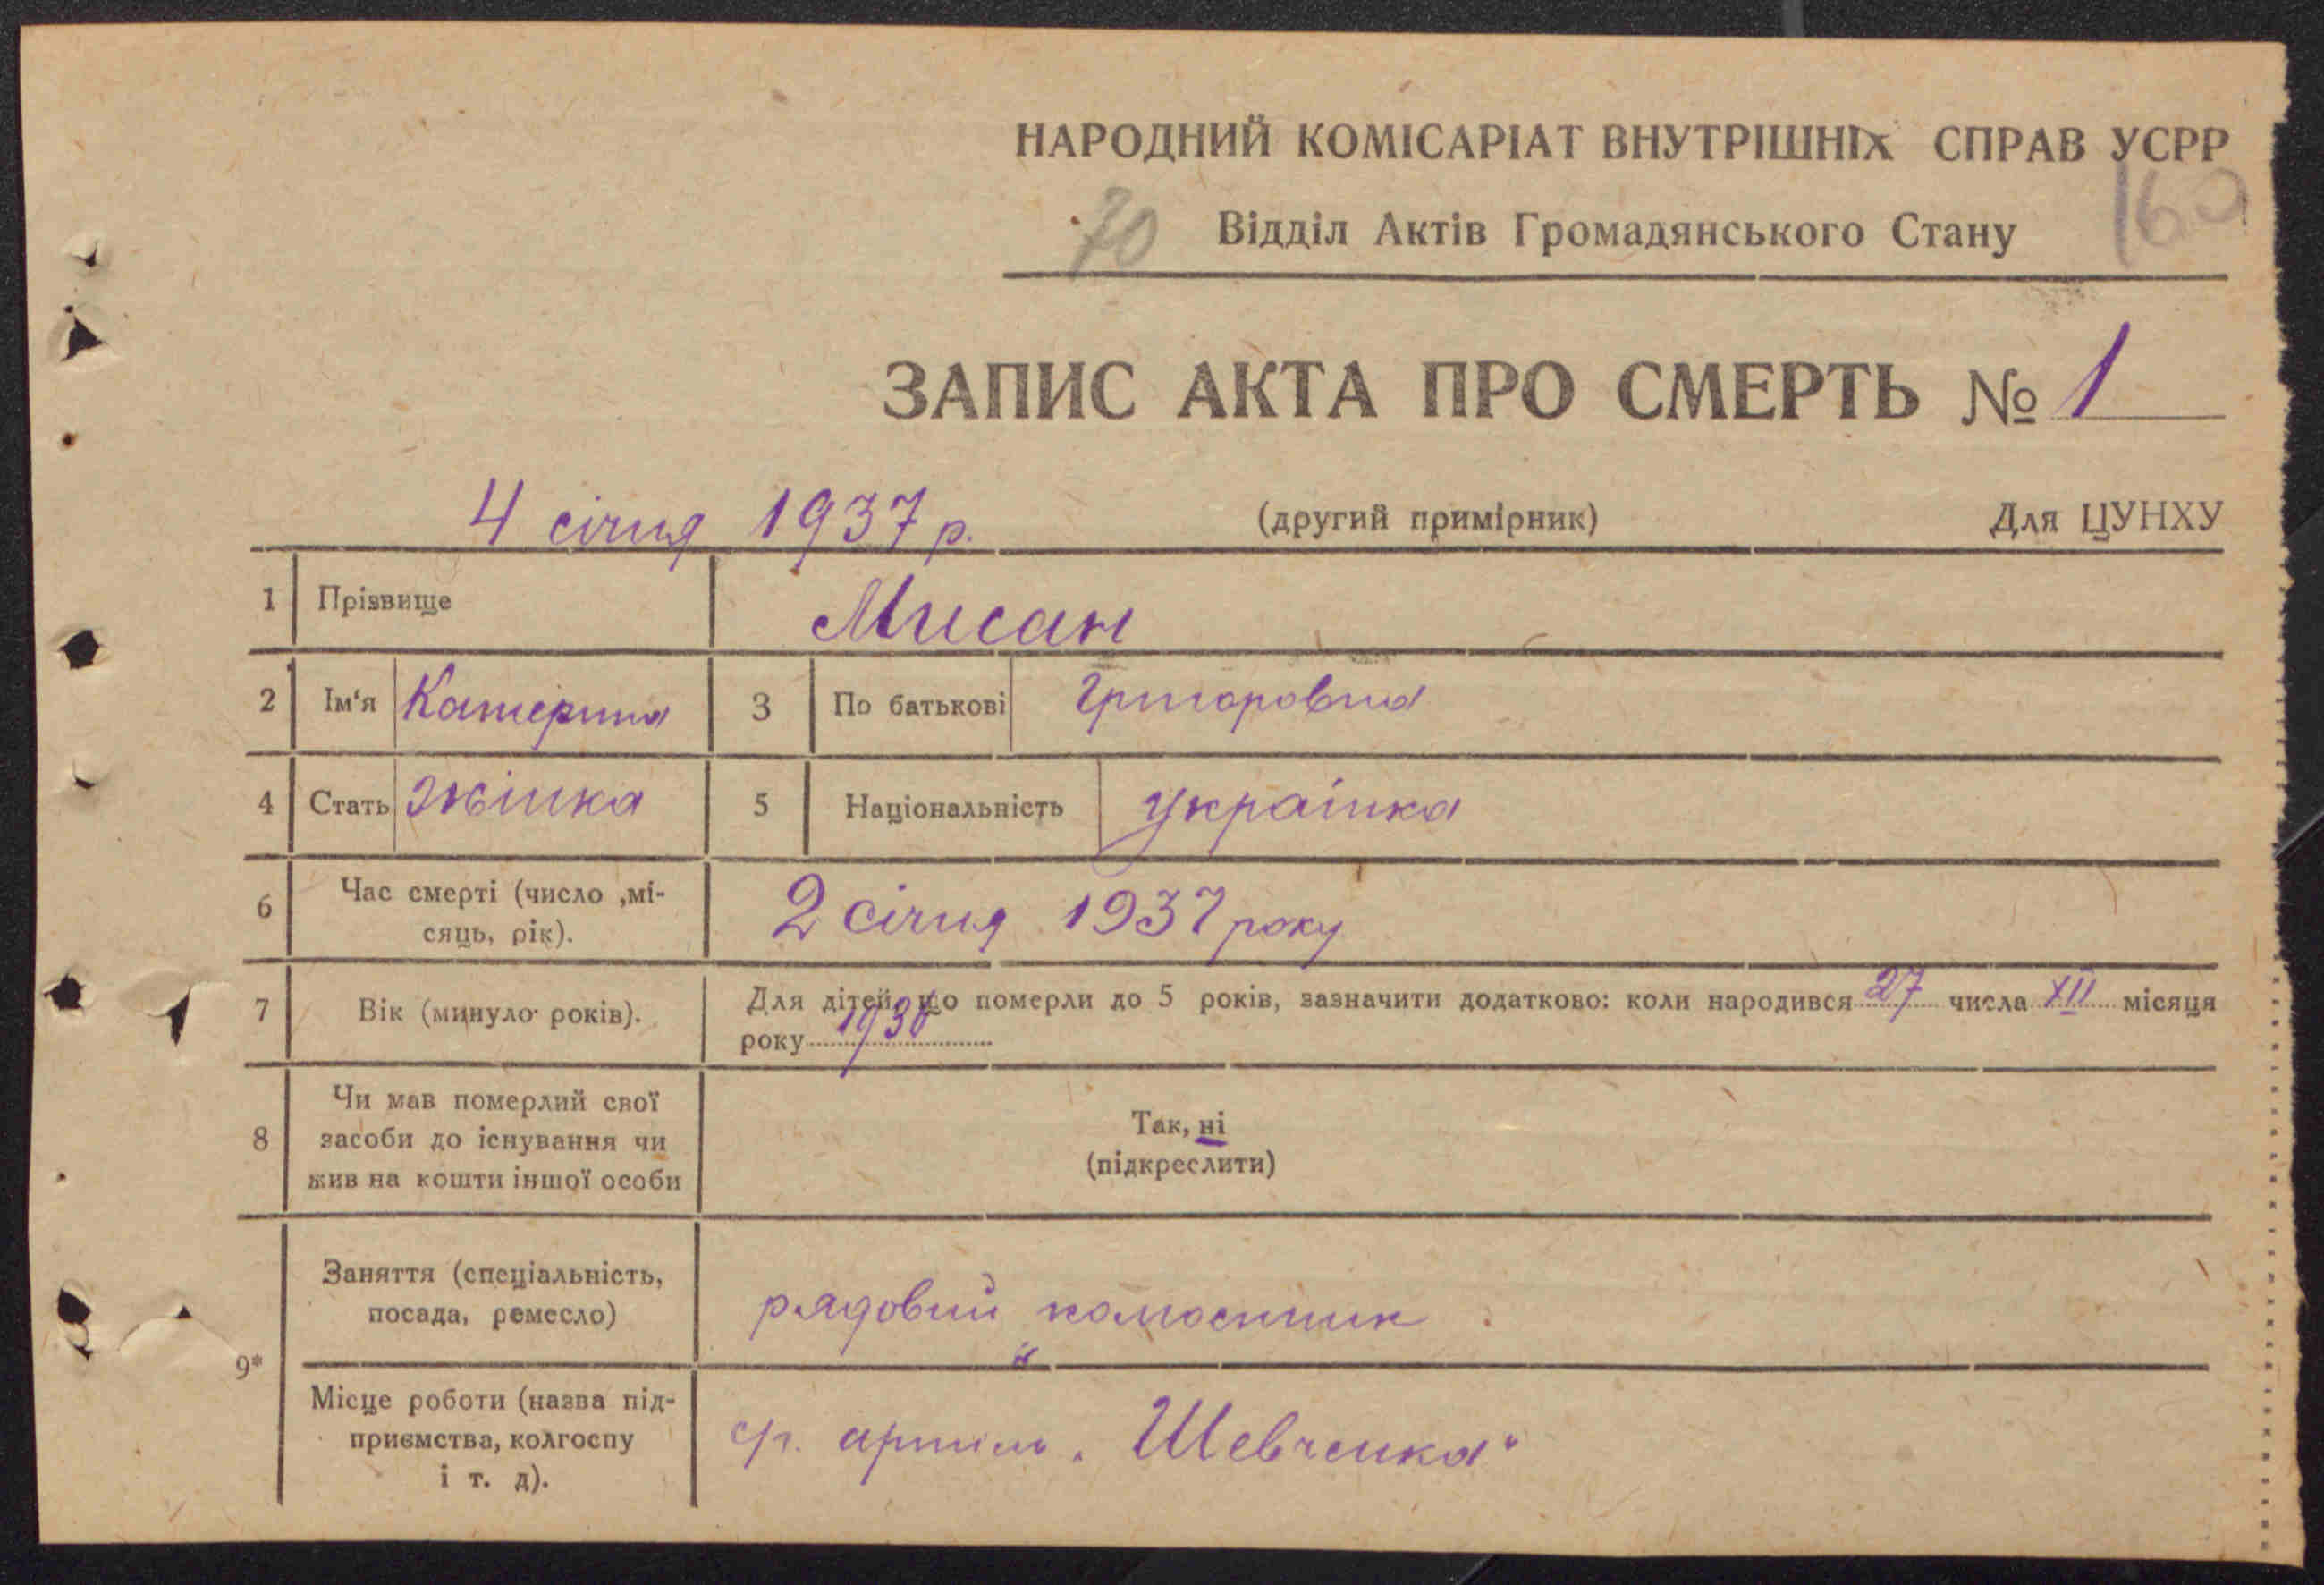 НАРОДНИЙ КОМІСАРІАТ ВНУТРІШНІХ СПРАВ УСРР
70 Відділ Актів Громадянського Стану 160
ЗАПИС АКТА ПРО СМЕРТЬ № 1
4 січня 1937 р. (другий примірник) Для ЦУНХУ
1 Прізвище Мисан
2 Ім‘я Катерина 3 По батькові Григоровна
4 Стать жінка 5 Національність українка
6 Час смерті (число ,мі-
сяць, рік). 2 січня 1937 року
7 Вік (минуло років). Для дітей, що померли до 5 років, зазначити додатково: коли народився 27 числа XII місяця
року 1936
8 Чи мав померлий свої
засоби до існування чи
жив на кошти іншої особи
Так, ні
(підкреслити)
9*
Заняття (спеціальність,
посада, ремесло)
рядовий колгоспник
Місце роботи (назва під-
приємства, колгоспу
і т. д).
с/г. артіль „Шевченка“